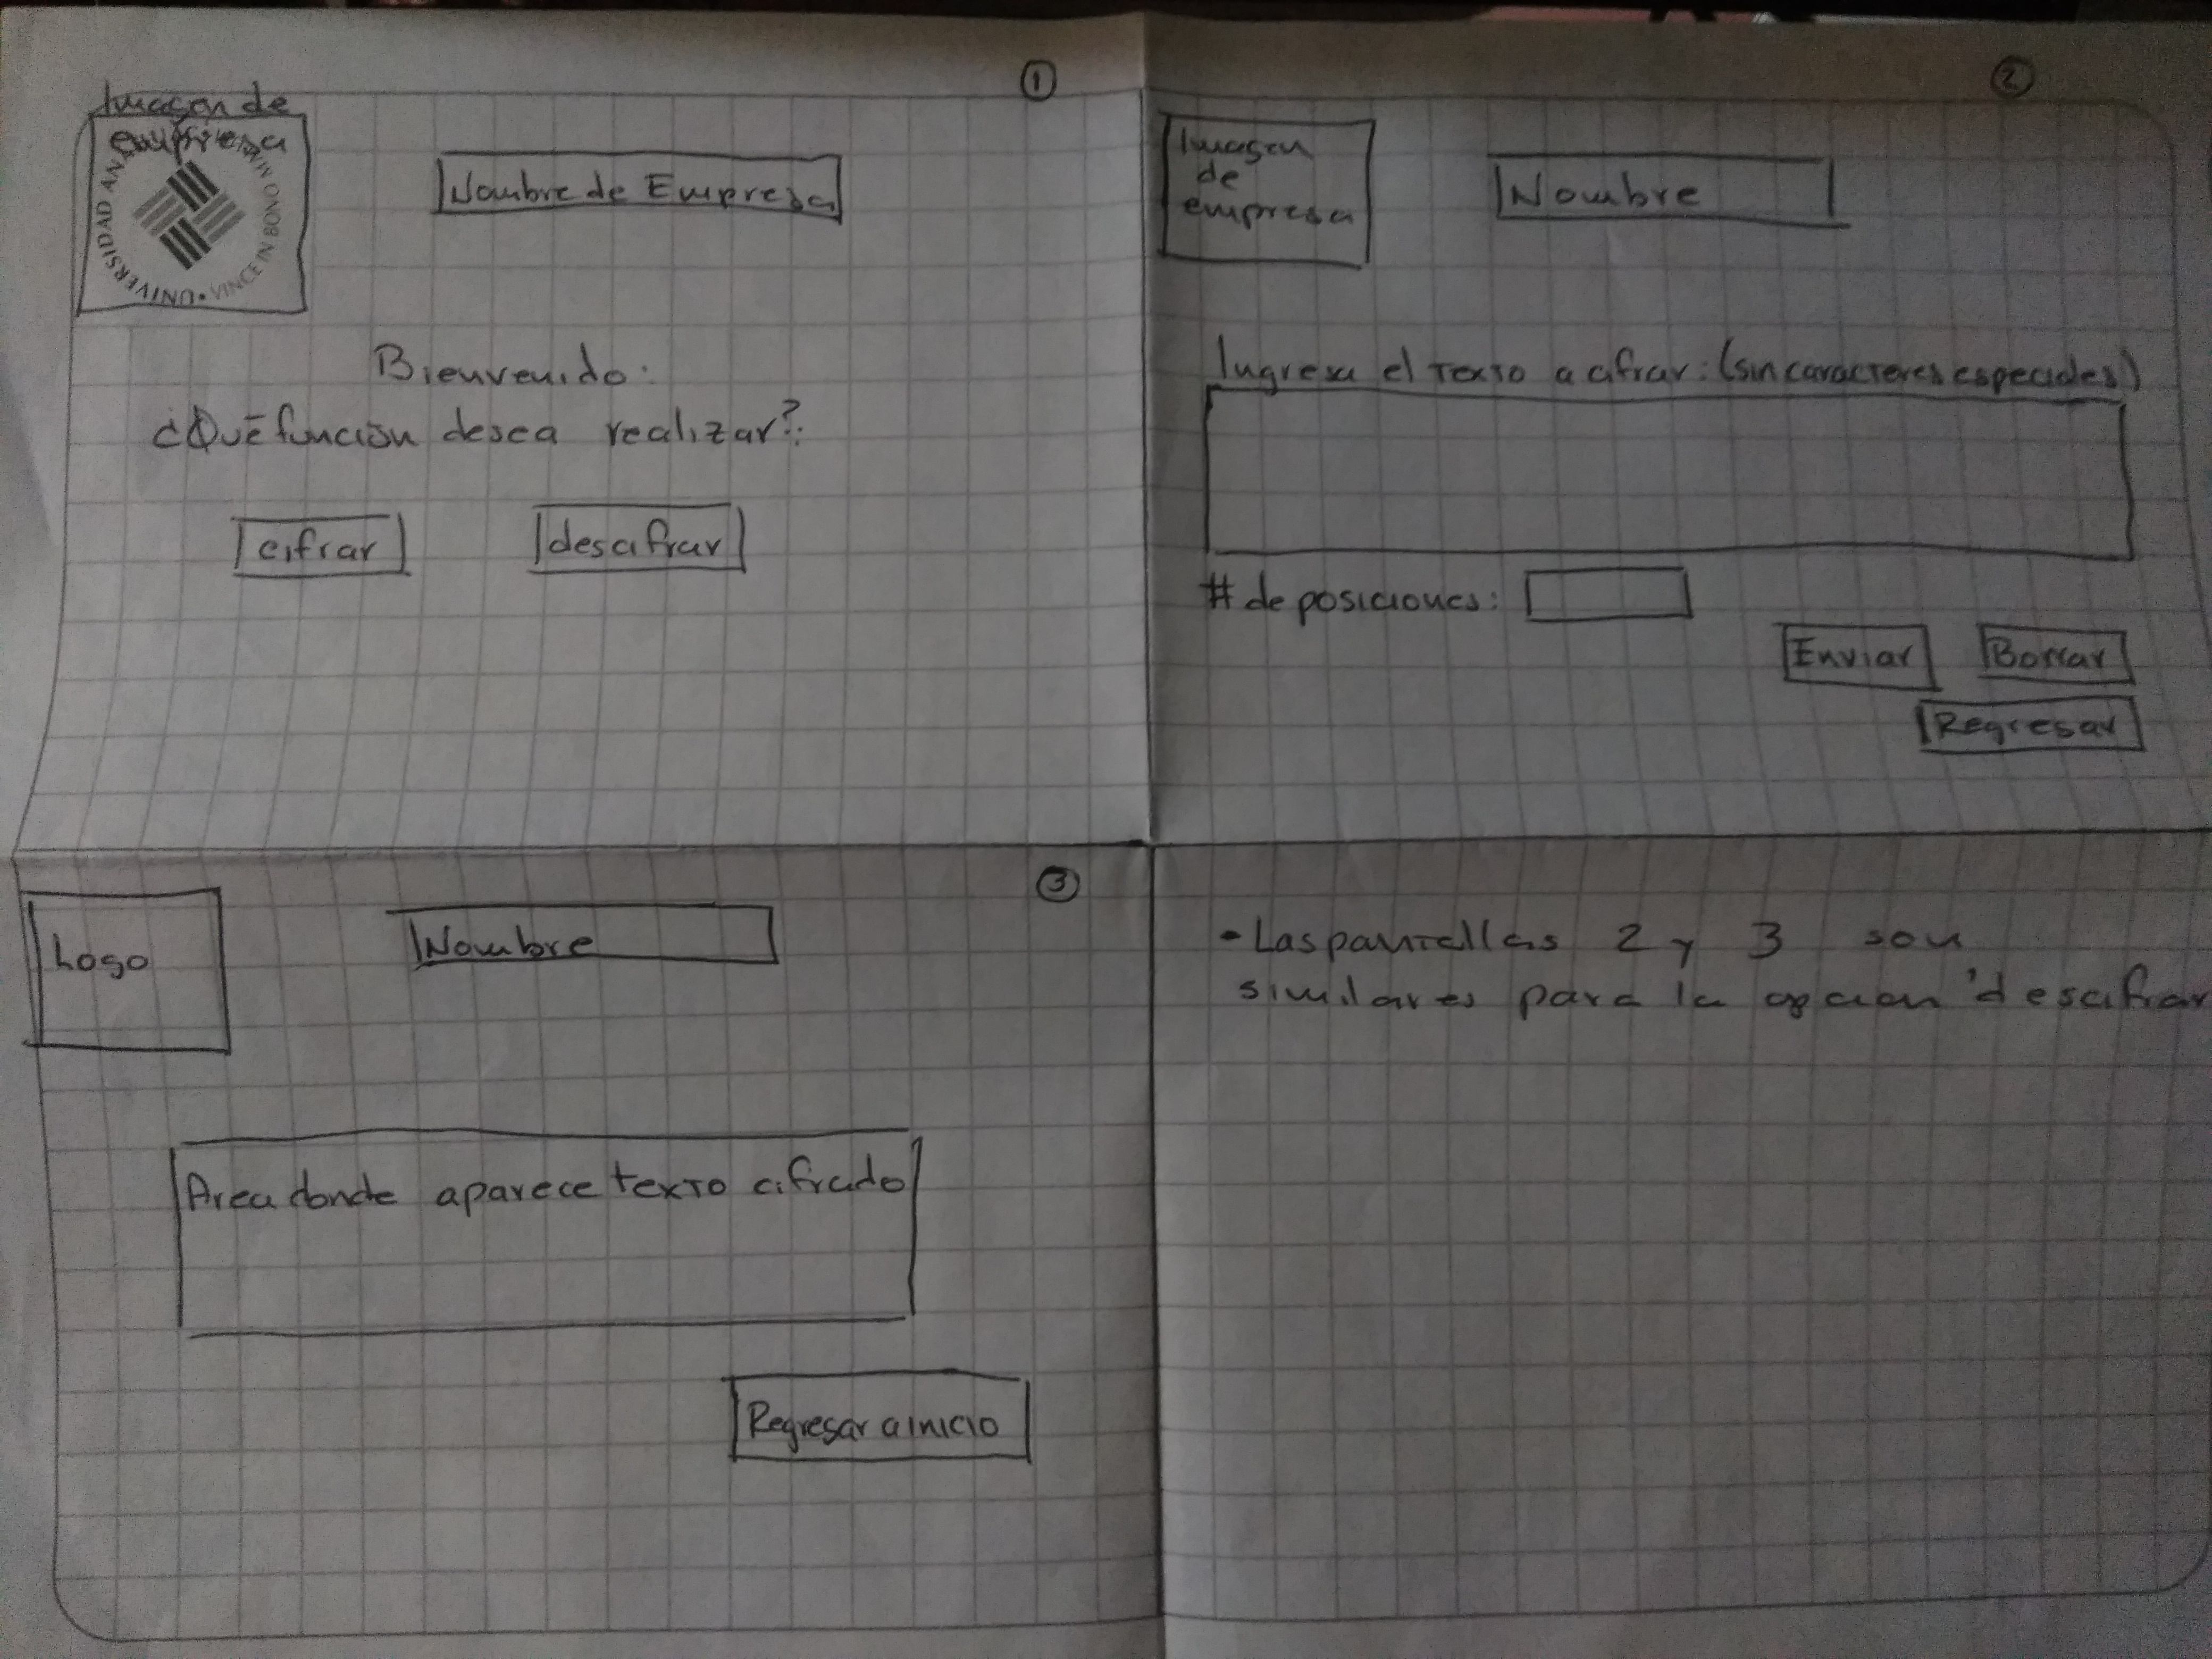 ①
Imagen de
empresa
UNIVERSIDAD ANÁ
VINCE IN BONO MA
Nombre de Empresa
Bienvenido:
¿Qué función desea realizar?:
cifrar
descifrar
②
Imagen
de
empresa
Nombre
Ingresa el texto a cifrar: (sin caracteres especiales)
# de posiciones:
Enviar
Borrar
Regresar
③
Logo
Nombre
Area donde aparece texto cifrado
Regresar a inicio
- Las pantallas 2 y 3 son
similares para la opcion 'descifrar